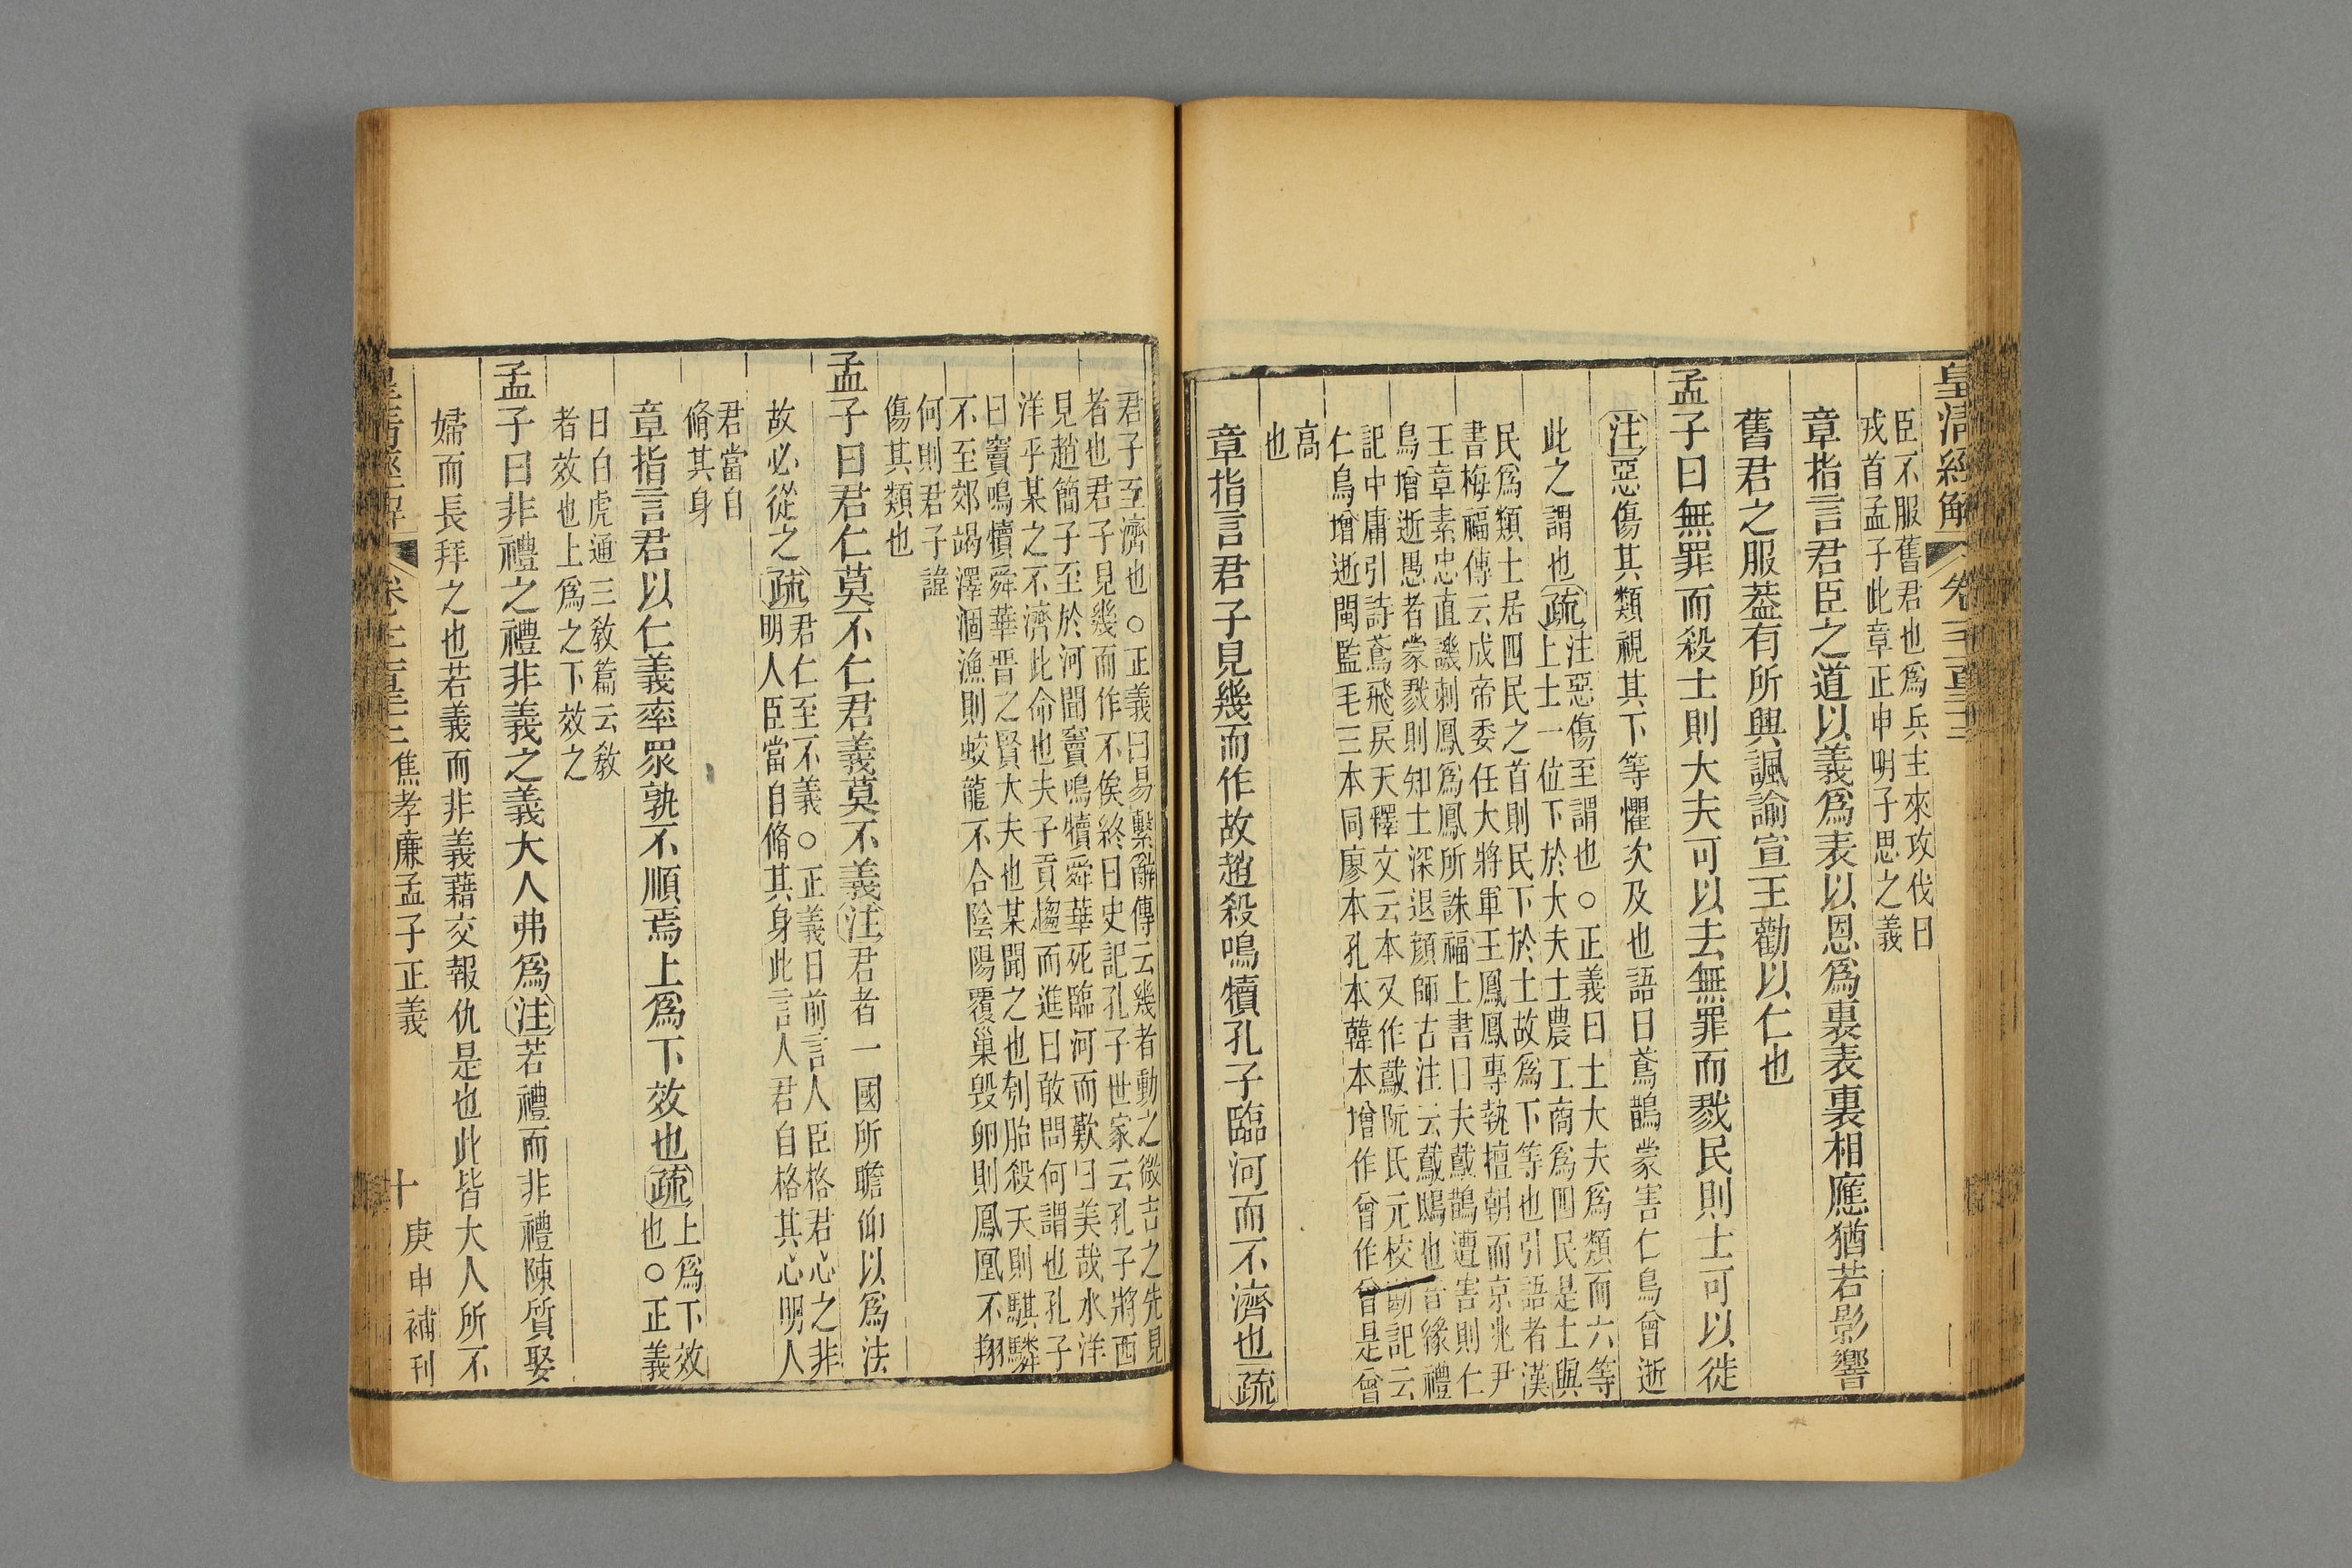 皇清經解
臣不服舊君也爲兵主來攻伐曰
戎首孟子此章正申明子思之義
章指言君臣之道以義爲表以恩爲裏表裏相應猶若影響
舊君之服葢有所興諷諭宣王勸以仁也
孟子曰無罪而殺士則大夫可以去無罪而戮民則士可以徙
注惡傷其類視其下等懼次及也語曰鳶鵲蒙害仁鳥曾逝
此之謂也疏注惡傷至謂也○正義曰士大夫爲類而六等
上士一位下於大夫士農工商爲四民是士與
民爲類士居四民之首則民下於士故爲下等也引語者漢
書梅福傳云成帝委任大將軍王鳳鳳專執擅朝而京兆尹
王章素忠直譏刺鳳爲鳳所誅福上書曰夫鳶鵲遭害則仁
鳥增逝愚者蒙戮則知士深退顏師古注云鳶鴟也音緣禮
記中庸引詩鳶飛戾天釋文云本又作鳶阮氏元校勘記云
仁鳥增逝閩監毛三本同廖本孔本韓本增作曾作曾是曾
高
也
章指言君子見幾而作故趙殺鳴犢孔子臨河而不濟也疏
君子至濟也○正義曰易繫辭傳云幾者動之微吉之先見
者也君子見幾而作不俟終日史記孔子世家云孔子將西
見趙簡子至於河聞竇鳴犢舜華死臨河而歎曰美哉水洋
洋乎某之不濟此命也夫子貢趨而進曰敢問何謂也孔子
曰竇鳴犢舜華晋之賢大夫也某聞之也刳胎殺天則騏驎
不至郊竭澤涸漁則蛟龍不合陰陽覆巢毀卵則鳳凰不翔
何則君子諱
傷其類也
孟子曰君仁莫不仁君義莫不義注君者一國所瞻仰以爲法
故必從之疏君仁至不義○正義曰前言人臣格君心之非
明人臣當自脩其身此言人君自格其心明人
君當自
脩其身
章指言君以仁義率眾孰不順焉上爲下效也疏上爲下效
也○正義
曰白虎通三敎篇云敎
者效也上爲之下效之
孟子曰非禮之禮非義之義大人弗爲注若禮而非禮陳質娶
婦而長拜之也若義而非義藉交報仇是也此皆大人所不
焦孝廉孟子正義 十 庚申補刊